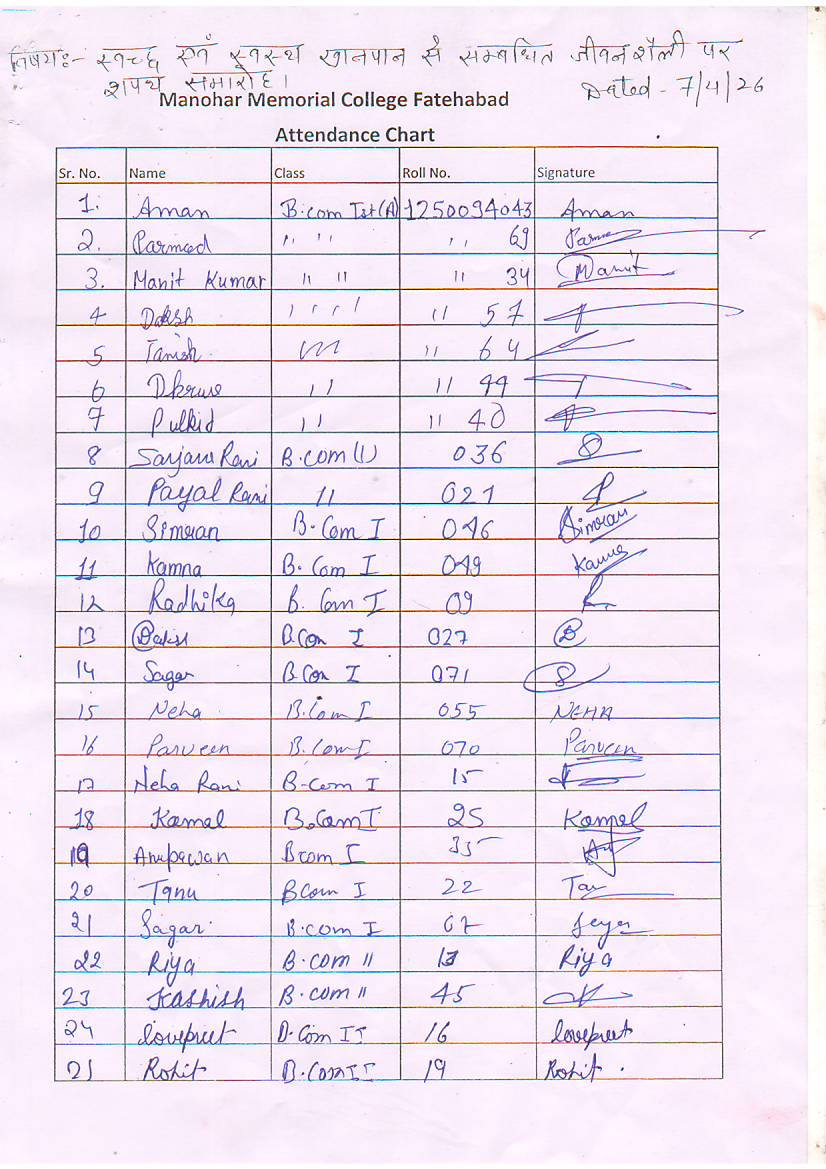 विषय:- स्वच्छ एवं स्वस्थ खानपान से सम्बधित जीवनशैली पर
शपथ समारोह।
Dated - 7/4/26
Manohar Memorial College Fatehabad
Attendance Chart
Sr. No. Name Class Roll No. Signature
1. Aman B.com Ist (A) 1250094043 Aman
2. Parmeed " " " 69
3. Manit Kumar " " " 34 Manit
4 Daksh " " " 57
5 Tanish " 64
6 " " 44
7 Pulkid " " 40
8 Rani B.com (I) 036
9 Payal Rani " 021
10 Simran B. Com I 046 Simran
11 Kamna B. Com I 049 Kamna
12 Radhika B. Com I 09
13 Daksh B.Con I 027
14 Sagar B.Con I 071
15 Neha B.Com I 055 NEHA
16 Parveen B.Com I 070 Parveen
17 Neha Rani B-Com I 15
18 Kamal B.Com I 25 Kamal
19 Anupawan Bcom I 35
20 Tanu BCom I 22
21 Sagar. B.com I 07
22 Riya B.com II 13 Riya
23 Kashish B.com II 45
24 lovepreet B.Com II 16 lovepreet
25 Rohit B.Com II 19 Rohit.